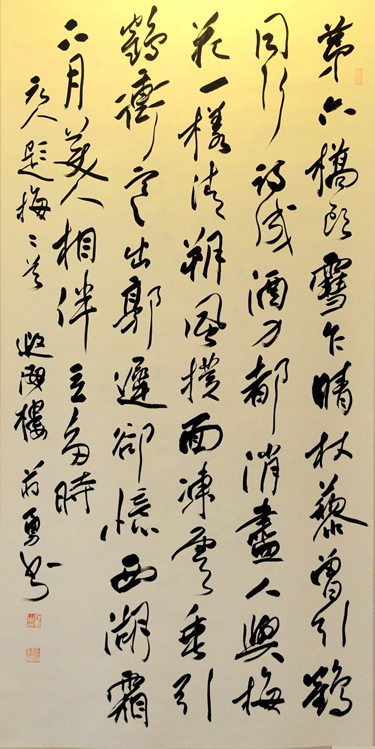 第六橋頭雪乍晴杖藜曾引鶴
同行詩成酒力都消盡人與梅
花一樣清朔風撲面凍雲垂引
鶴衝寒出郭遲卻憶西湖霜
下月美人相伴立多時
元人題梅二首 樓 蔣勇書